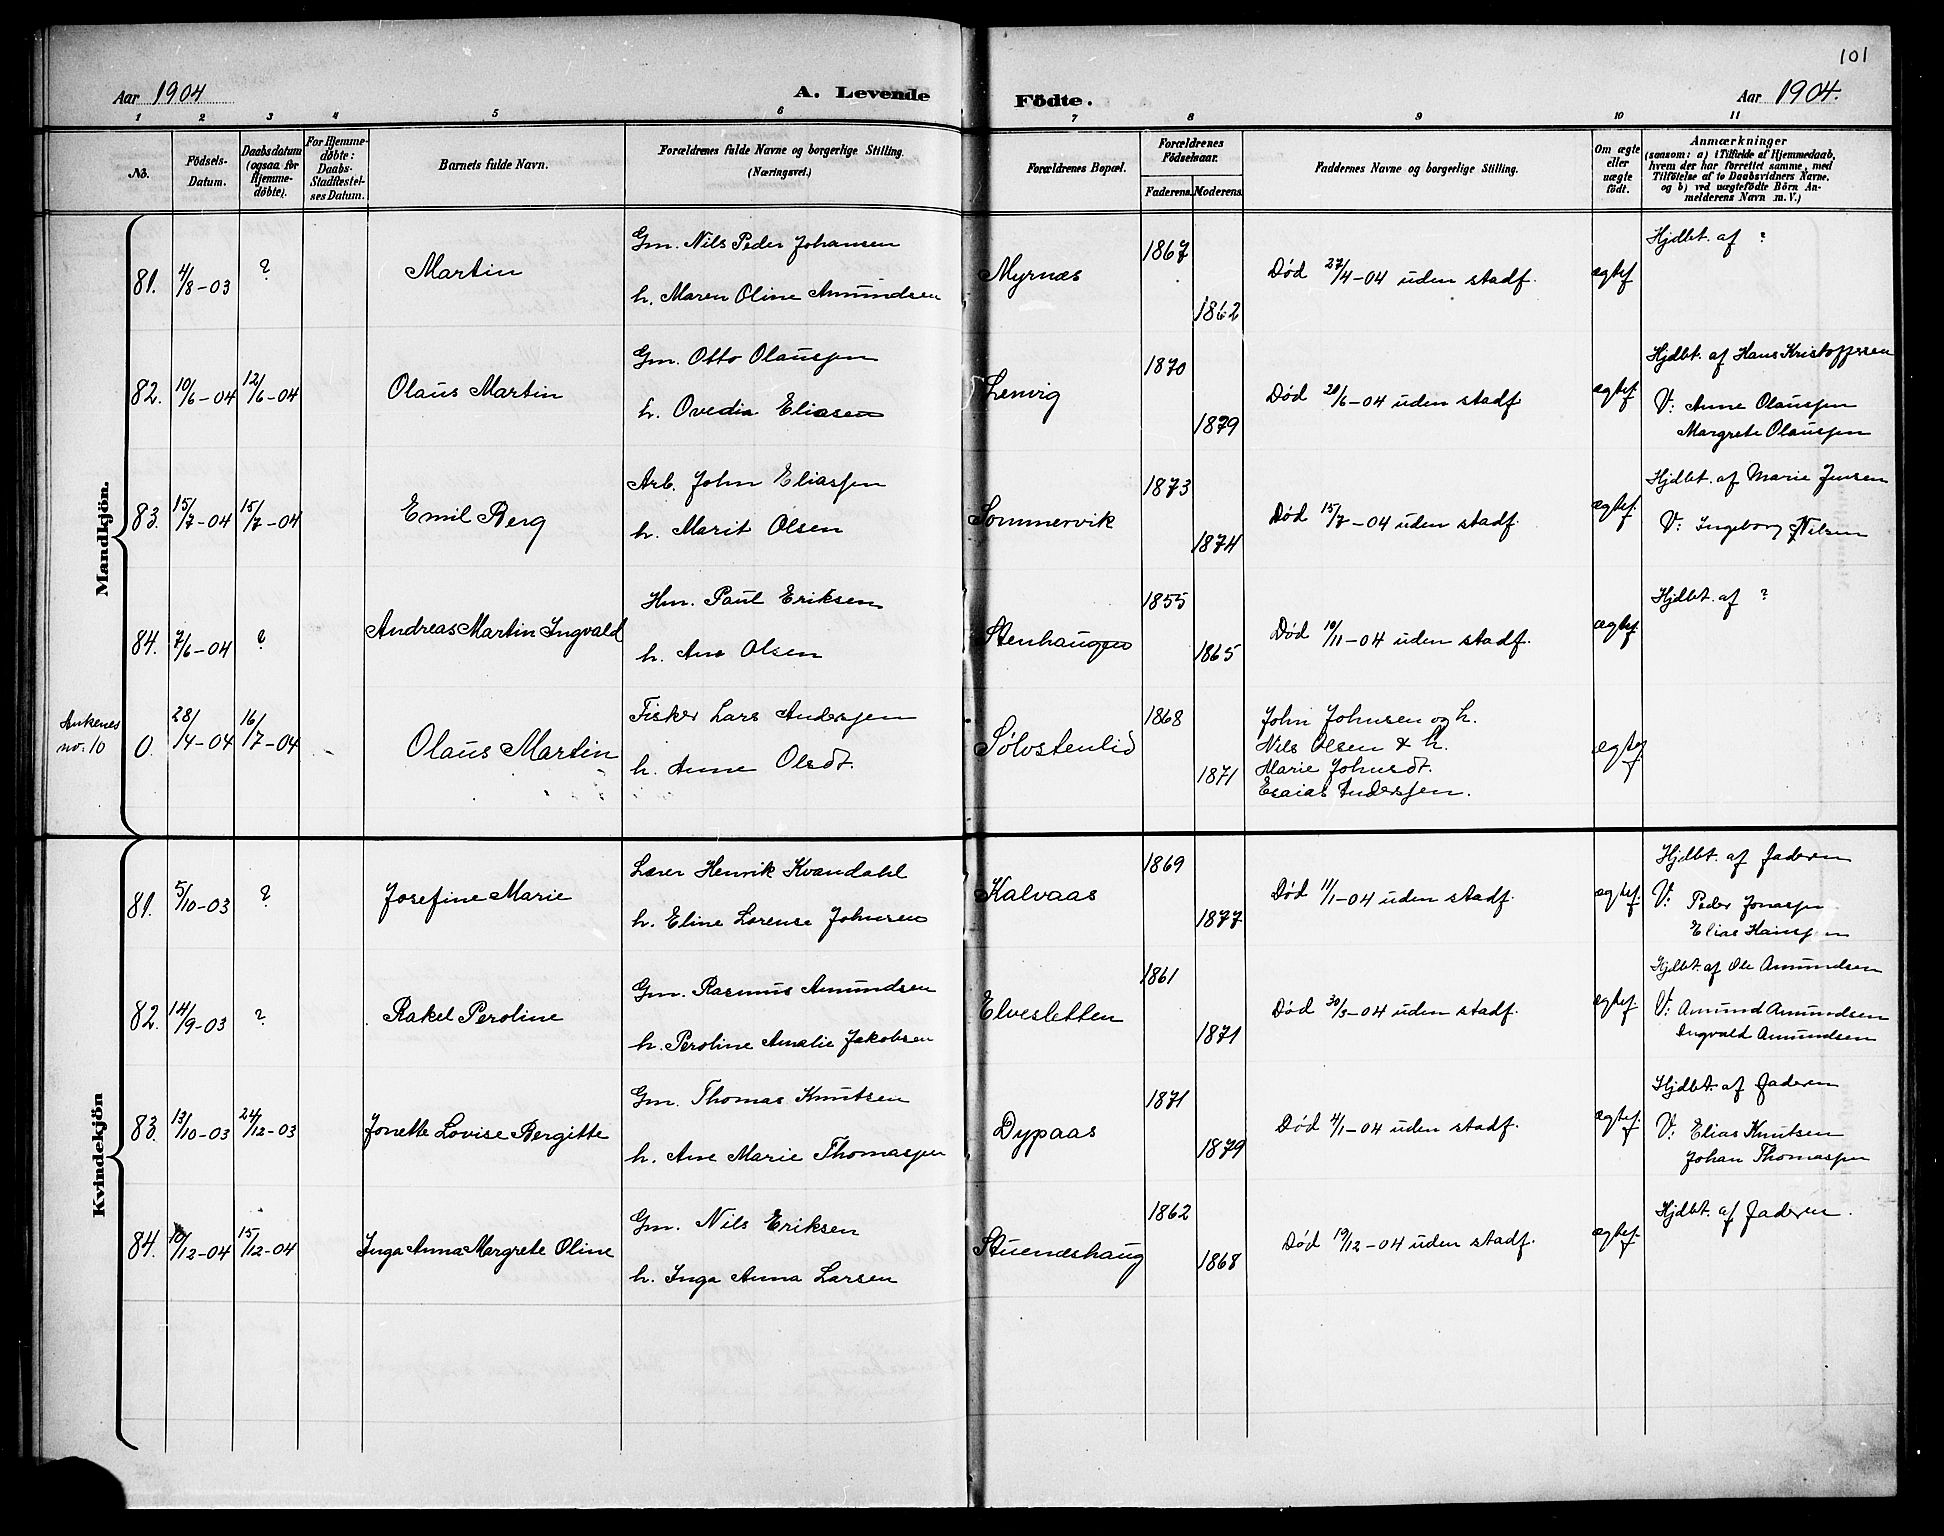 101
Aar 1904
A. Levende Födte.
Aar 1904.
1 2 3 4 5 6 7 8 9 10 11
No.
Födsels-Datum.
Daabsdatum (ogsaa for Hjemmedöbte).
For Hjemmedöbte: Daabs-Stadfæstelses Datum.
Barnets fulde Navn.
Forældrenes fulde Navne og borgerlige Stilling. (Næringsvei.)
Forældrenes Bopæl.
Forældrenes Födselsaar.
Faderens. Moderens.
Faddernes Navne og borgerlige Stilling.
Om ægte eller uægte födt.
Anmærkninger
(saasom: a) i Tilfælde af Hjemmedaab, hvem der har forrettet samme, med Tilföielse af to Daabsvidners Navne, og b) ved uægtefödte Börn Anmelderens Navn m. V.)
Mandkjön.
81. 4/8-03 ? Martin
Gm. Nils Peder Johansen
h. Maren Oline Amundsen
Myrnæs 1867 1862
Død 27/4-04 uden stadf. ægtef
Hjdbt. af ?
82. 10/6-04 12/6-04 Olaus Martin
Gm. Otto Olaussen
h. Ovedia Eliasen
Lenvig 1870 1879
Død 20/6-04 uden stadf. ægtef
Hjdbt. af Hans Kristoffersen
V: Anne Olaussen
Margrete Olaussen
83. 15/7-04 15/7-04 Emil Berg
Arb. John Eliassen
h. Marit Olsen
Sommervik 1873 1874
Død 15/7-04 uden stadf. ægtef.
Hjdbt. af Marie Jensen
V: Ingeborg Nilsen
84. 7/6-04 ? Andreas Martin Ingvald
Hm. Paul Eriksen
h. Ane Olsen
Stenhaugen 1855 1865
Død 10/11-04 uden stadf. ægtef.
Hjdbt. af ?
Ankenes
no. 10
0. 28/4-04 16/7-04 Olaus Martin
Fisker Lars Anderssen
h. Anne Olsdt.
Sølvstenlid 1868 1871
John Johnsen og h.
Nils Olsen & h.
Marie Johnsdt.
Esaias Anderssen.
ægtef
Kvindekjön
81. 5/10-03 ? Josefine Marie
Lærer Henrik Kvandahl
h. Eline Lorense Johnsen
Kalvaas 1869 1877
Død 11/1-04 uden stadf. ægtef.
Hjdbt. af Faderen
V: Peder Jonassen
Elias Hanssen
82. 14/9-03 ? Rakel Peroline
Gm. Rasmus Amundsen
h. Peroline Amalie Jakobsen
Elvesletten 1861 1871
Død 30/3-04 uden stadf. ægtef.
Hjdbt. af Ole Amundsen
V: Amund Amundsen
Ingvald Amundsen
83. 13/10-03 24/12-03 Jonette Lovise Bergitte
Gm. Thomas Knutsen
h. Ane Marie Thomassen
Dypaas 1871 1879
Død 4/1-04 uden stadf. ægtef.
Hjdbt. af Faderen
V: Elias Knutsen
Johan Thomassen
84. 10/12-04 15/12-04 Inga Anna Margrete Oline
Gm. Nils Eriksen
h. Inga Anna Larsen
Stueneshaug 1862 1868
Død 19/12-04 uden stadf. ægtef.
Hjdbt. af Faderen.